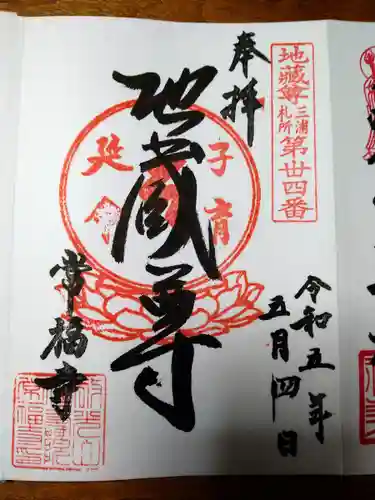 地蔵尊三浦札所第廿四番
奉拝
地蔵尊
子育
延命
令和五年
五月四日
常福寺